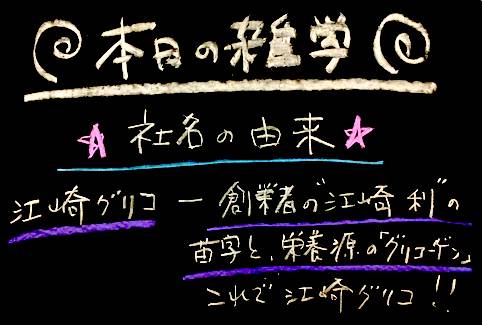 本日の雑学
社名の由来
江崎グリコ ー 創業者の"江崎 利"の
苗字と、栄養源の「グリコーゲン」
これで 江崎グリコ!!